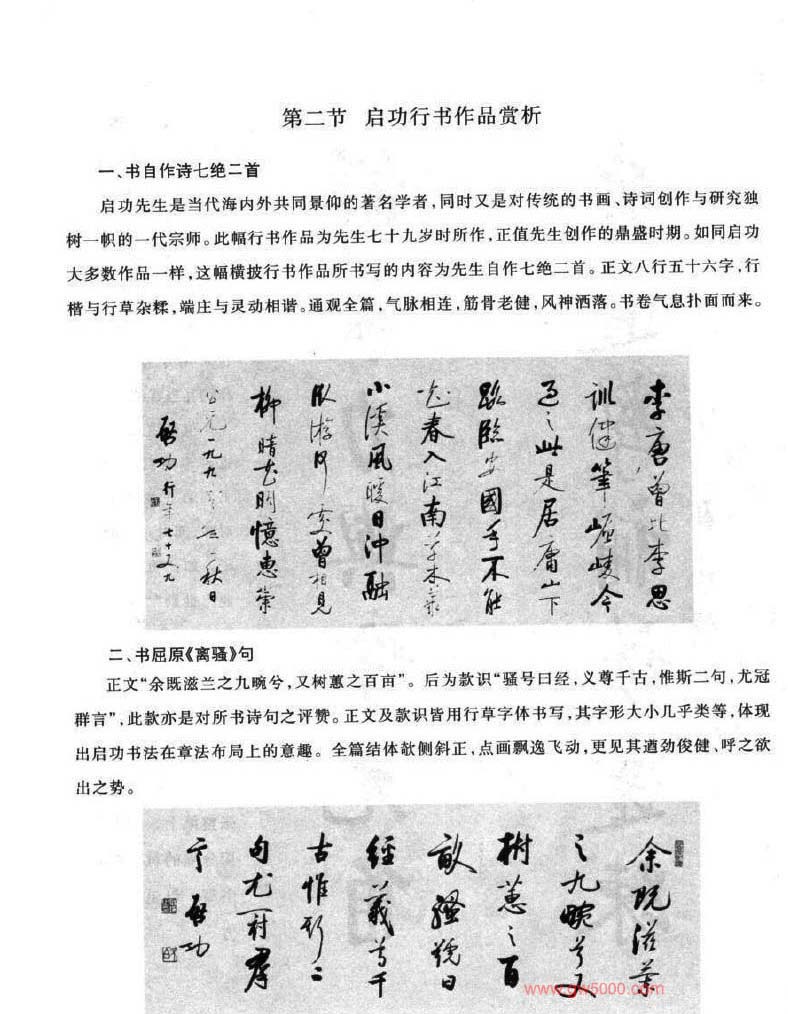 第二节 启功行书作品赏析
一、书自作诗七绝二首
启功先生是当代海内外共同景仰的著名学者,同时又是对传统的书画、诗词创作与研究独
树一帜的一代宗师。此幅行书作品为先生七十九岁时所作,正值先生创作的鼎盛时期。如同启功
大多数作品一样,这幅横披行书作品所书写的内容为先生自作七绝二首。正文八行五十六字,行
楷与行草杂糅,端庄与灵动相谐。通观全篇,气脉相连,筋骨老健,风神洒落。书卷气息扑面而来。
李唐曾比李思
训健笔崚今
之此是居庸山下
路临安國手不能
春入江南草木
小溪風暖日沖融
卧游何处曾相見
柳暗花明憶惠崇
公元一九九 秋日
啟功行年七十又九
二、书屈原《离骚》句
正文“余既滋兰之九畹兮,又树蕙之百亩”。后为款识“骚号曰经,义尊千古,惟斯二句,尤冠
群言”,此款亦是对所书诗句之评赞。正文及款识皆用行草字体书写,其字形大小几乎类等,体现
出启功书法在章法布局上的意趣。全篇结体欹侧斜正,点画飘逸飞动,更见其遒劲俊健、呼之欲
出之势。
余既滋蘭
之九畹兮又
樹蕙之百
畝騷號曰
經義尊千
古惟斯二
句尤冠群
言啟功
www.dw5000.com